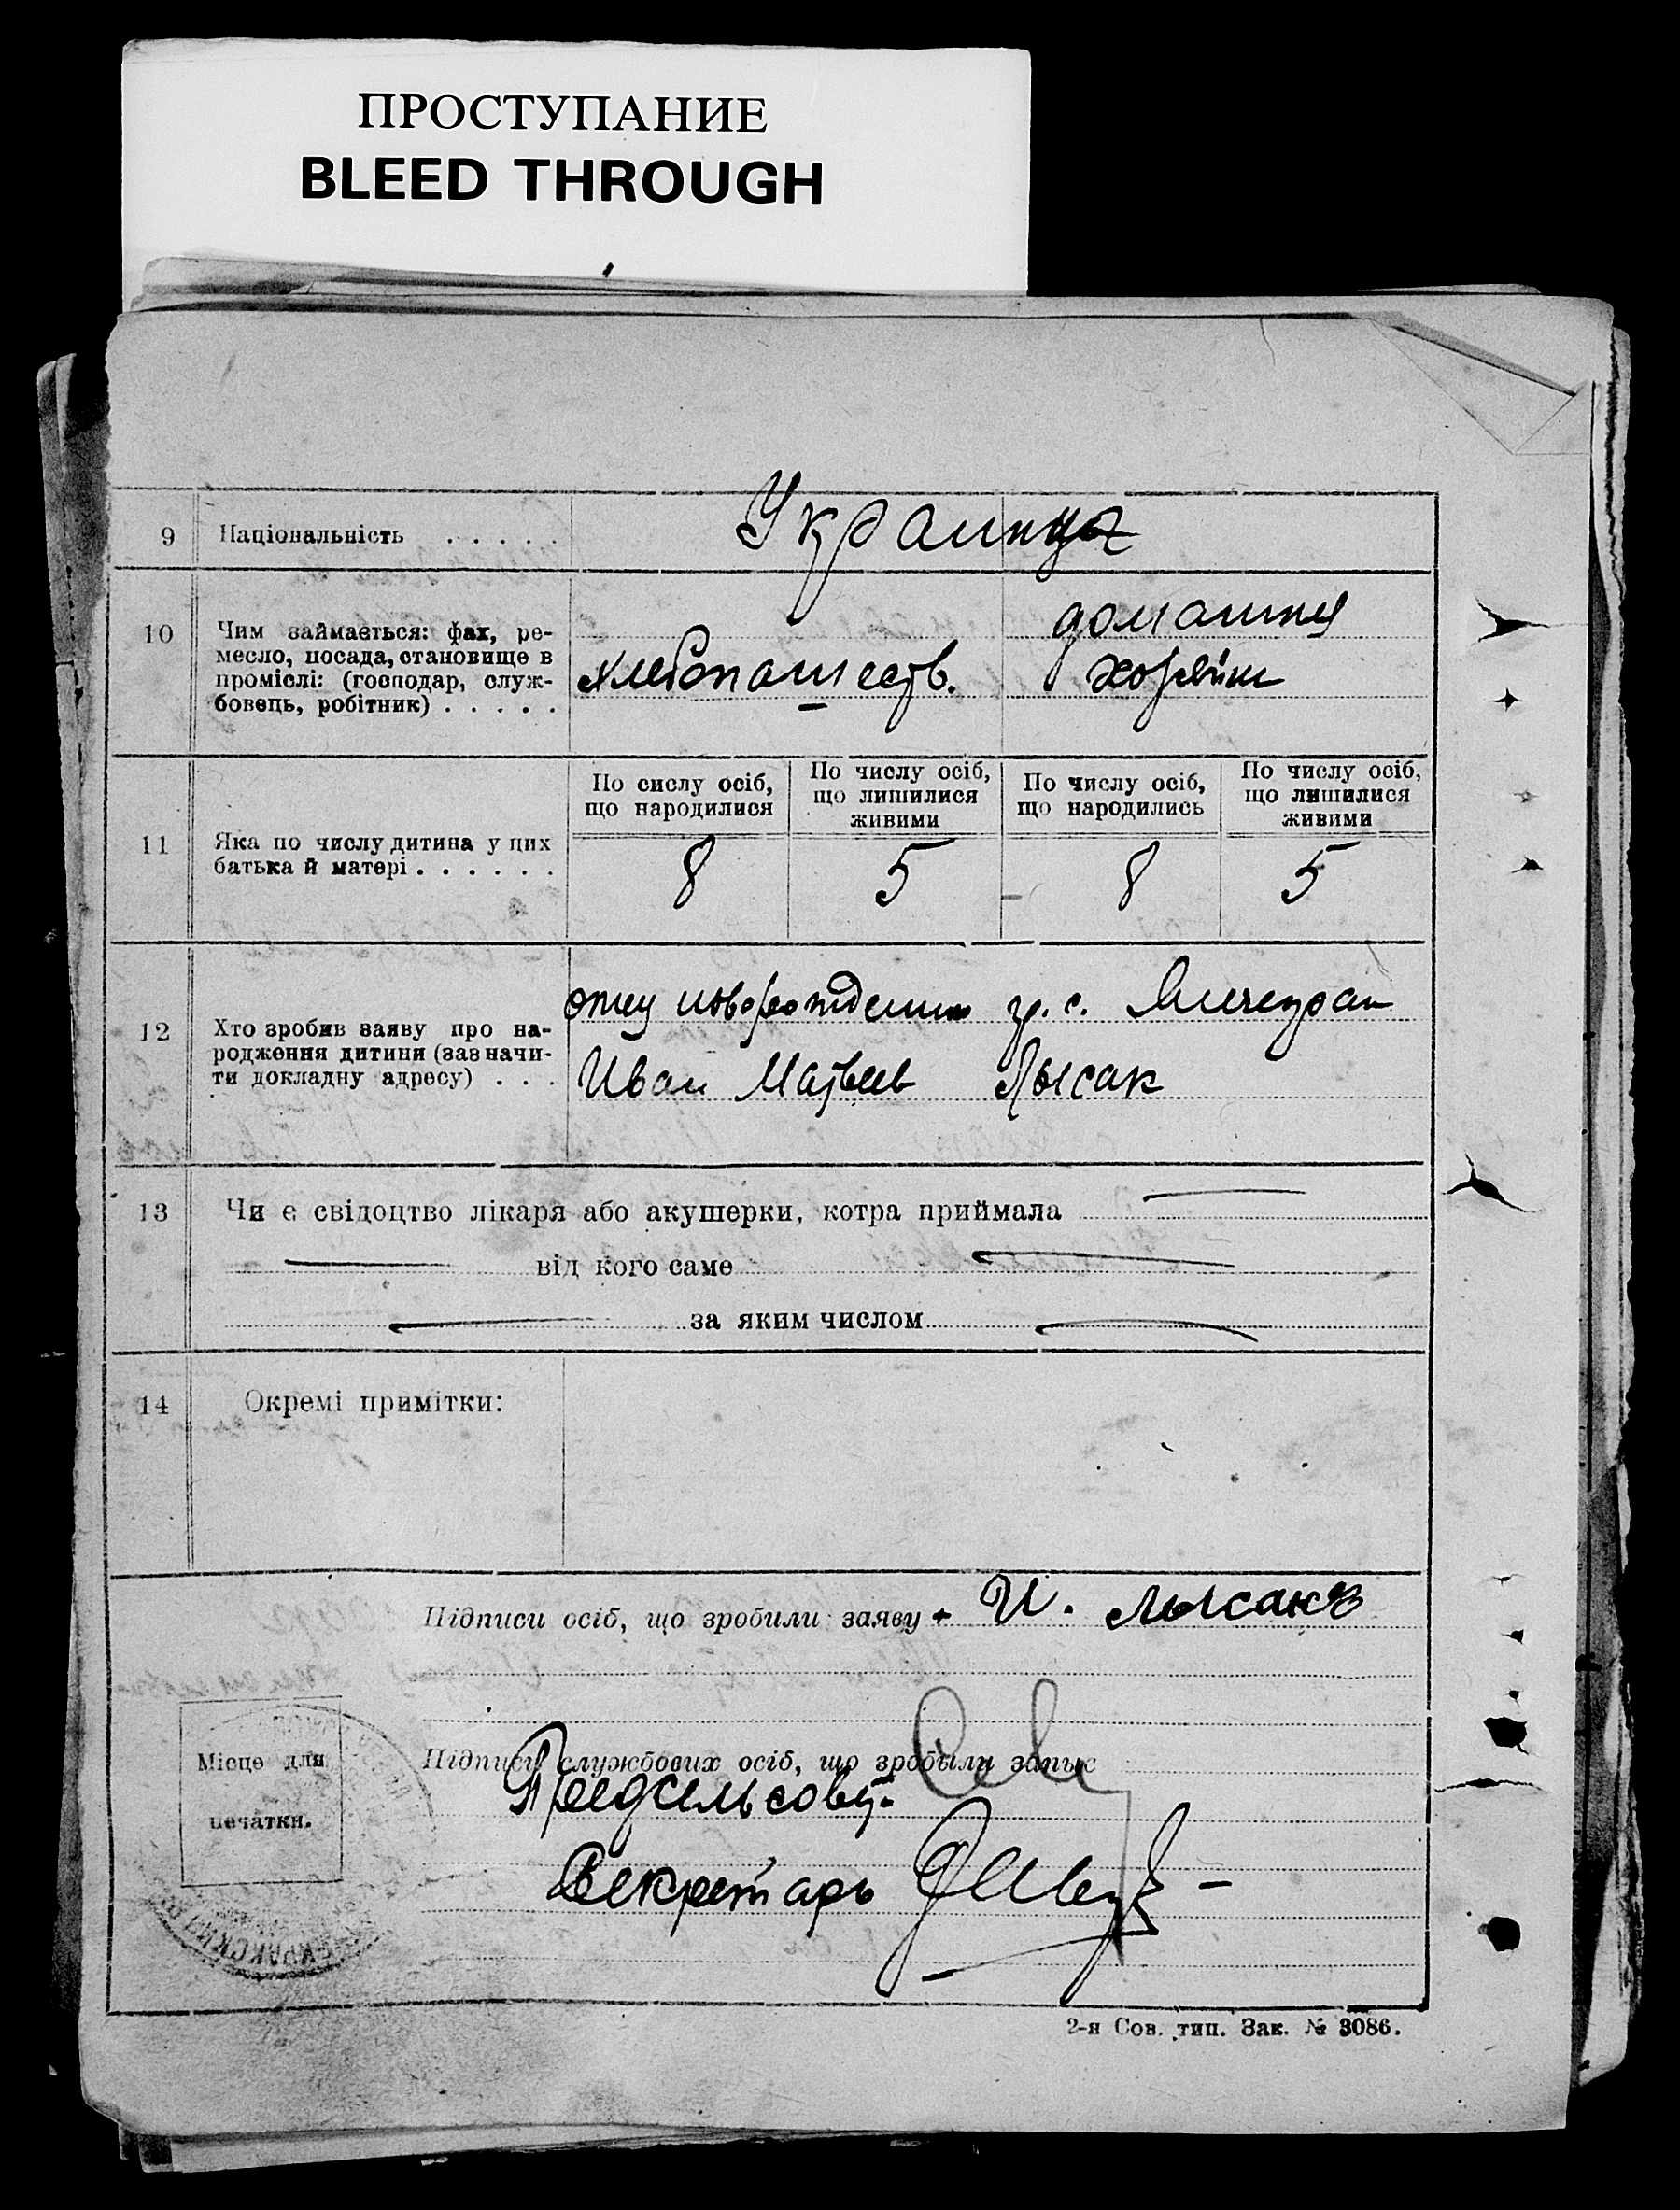 ПРОСТУПАНИЕ
BLEED THROUGH
9 Національність . . . . . Украинцы
10 Чим займається: фах, ре-
месло, посада, становище в
проміслі: (господар, служ-
бовець, робітник) . . . . .
домашня
хлебопашеств. хозяйн
По сислу осіб,
що народилися
По числу осіб,
що лишилися
живими
По числу осіб,
що народились
По числу осіб,
що лишилися
живими
11 Яка по числу дитина у цих
батька й матері . . . . . .
8 5 8 5
12 Хто зробив заяву про на-
родження дитини (зазначи-
ти докладну адресу) . . .
отец новорожденн гр. с.
Иван Матвеев Лысак
13 Чи є свідоцтво лікаря або акушерки, котра приймала
від кого саме
за яким числом
14 Окремі примітки:
Підписи осіб, що зробили заяву И. Лысакъ
Підписи службових осіб, що зробыли запыс
Предсельсовет.
Секретарь
Місце для
печатки.
2-я Сов. тип. Зак. № 3086.